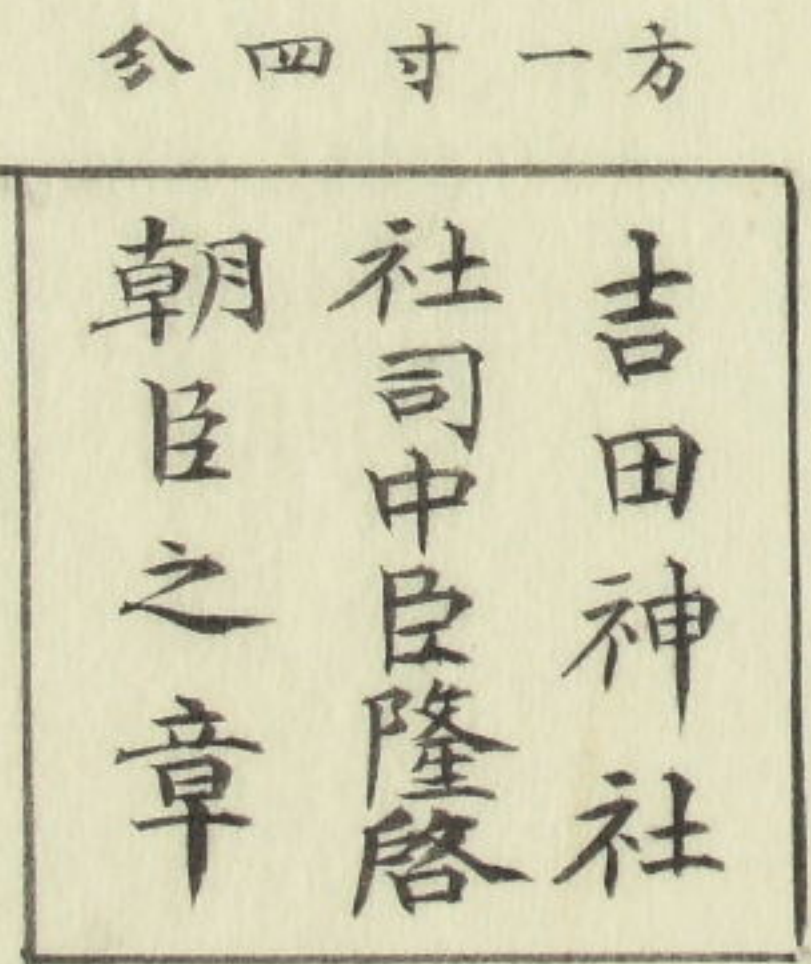 方一寸四分
吉田神社
社司中臣隆啓
朝臣之章